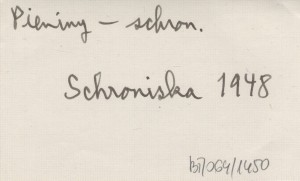 Pieniny – schron.
Schroniska 1948
BT/064/1450